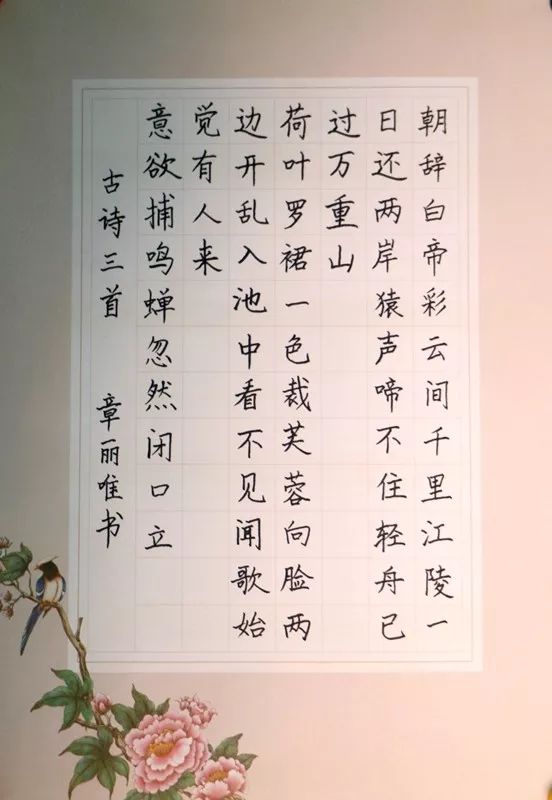 朝辞白帝彩云间千里江陵一
日还两岸猿声啼不住轻舟已
过万重山
荷叶罗裙一色裁芙蓉向脸两
边开乱入池中看不见闻歌始
觉有人来
意欲捕鸣蝉忽然闭口立
古诗三首 章丽唯书